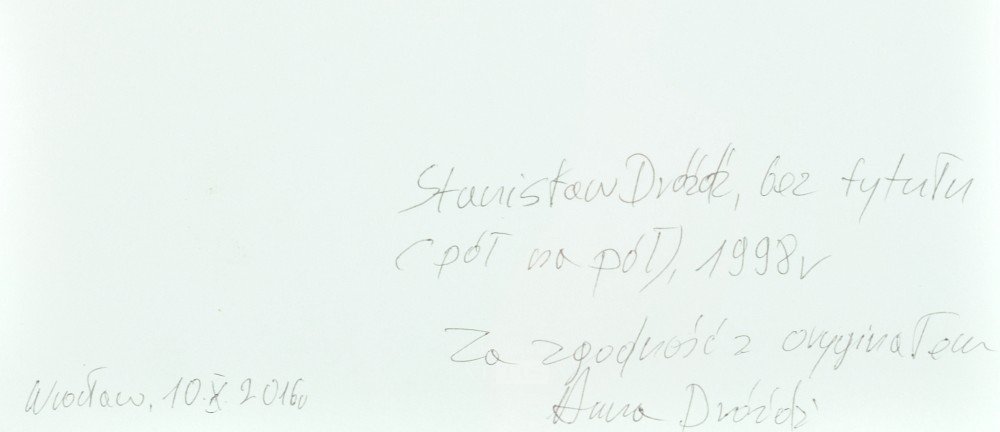 Stanisław Dróżdż, bez tytułu
(pół na pół), 1998r
Za zgodność z oryginałem
Wrocław, 10.X.2016r Anna Dróżdż